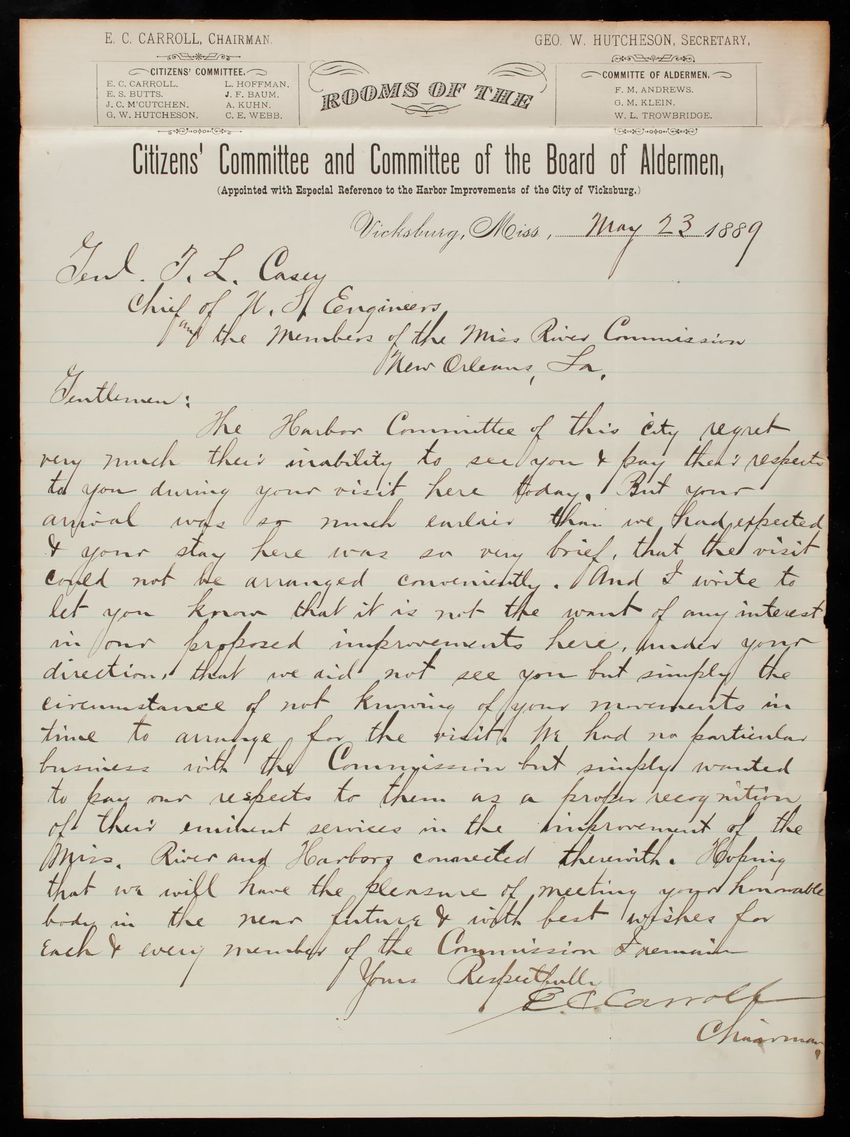 E. C. CARROLL, CHAIRMAN.
GEO. W. HUTCHESON, SECRETARY,
CITIZENS' COMMITTEE.
E. C. CARROLL. L. HOFFMAN.
E. S. BUTTS. J. F. BAUM.
J. C. M'CUTCHEN. A. KUHN.
G. W. HUTCHESON. C. E. WEBB.
ROOMS OF THE
COMMITTE OF ALDERMEN.
F. M. ANDREWS.
G. M. KLEIN.
W. L. TROWBRIDGE.
Citizens' Committee and Committee of the Board of Aldermen,
(Appointed with Especial Reference to the Harbor Improvements of the City of Vicksburg.)
Vicksburg, Miss, May 23 1889
Genl. T. L. Casey
Chief of U. S. Engineers
and the Members of the Miss River Commission
New Orleans, La,
Gentlemen:
The Harbor Committee of this city regret
very much their inability to see you & pay their respects
to you during your visit here today. But your
arrival was so much earlier than we had expected
& your stay here was so very brief, that the visit
could not be arranged conveniently. And I write to
let you know that it is not the want of any interest
in our proposed improvements here, under your
direction, that we did not see you but simply the
circumstance of not knowing of your movements in
time to arrange for the visit. We had no particular
business with the Commission but simply wanted
to pay our respects to them as a proper recognition
of their eminent services in the improvement of the
Miss. River and Harbors connected therewith. Hoping
that we will have the pleasure of meeting your honorable
body in the near future & with best wishes for
Each & every member of the Commission I remain
Yours Respectfully
E C Carroll
Chairman.